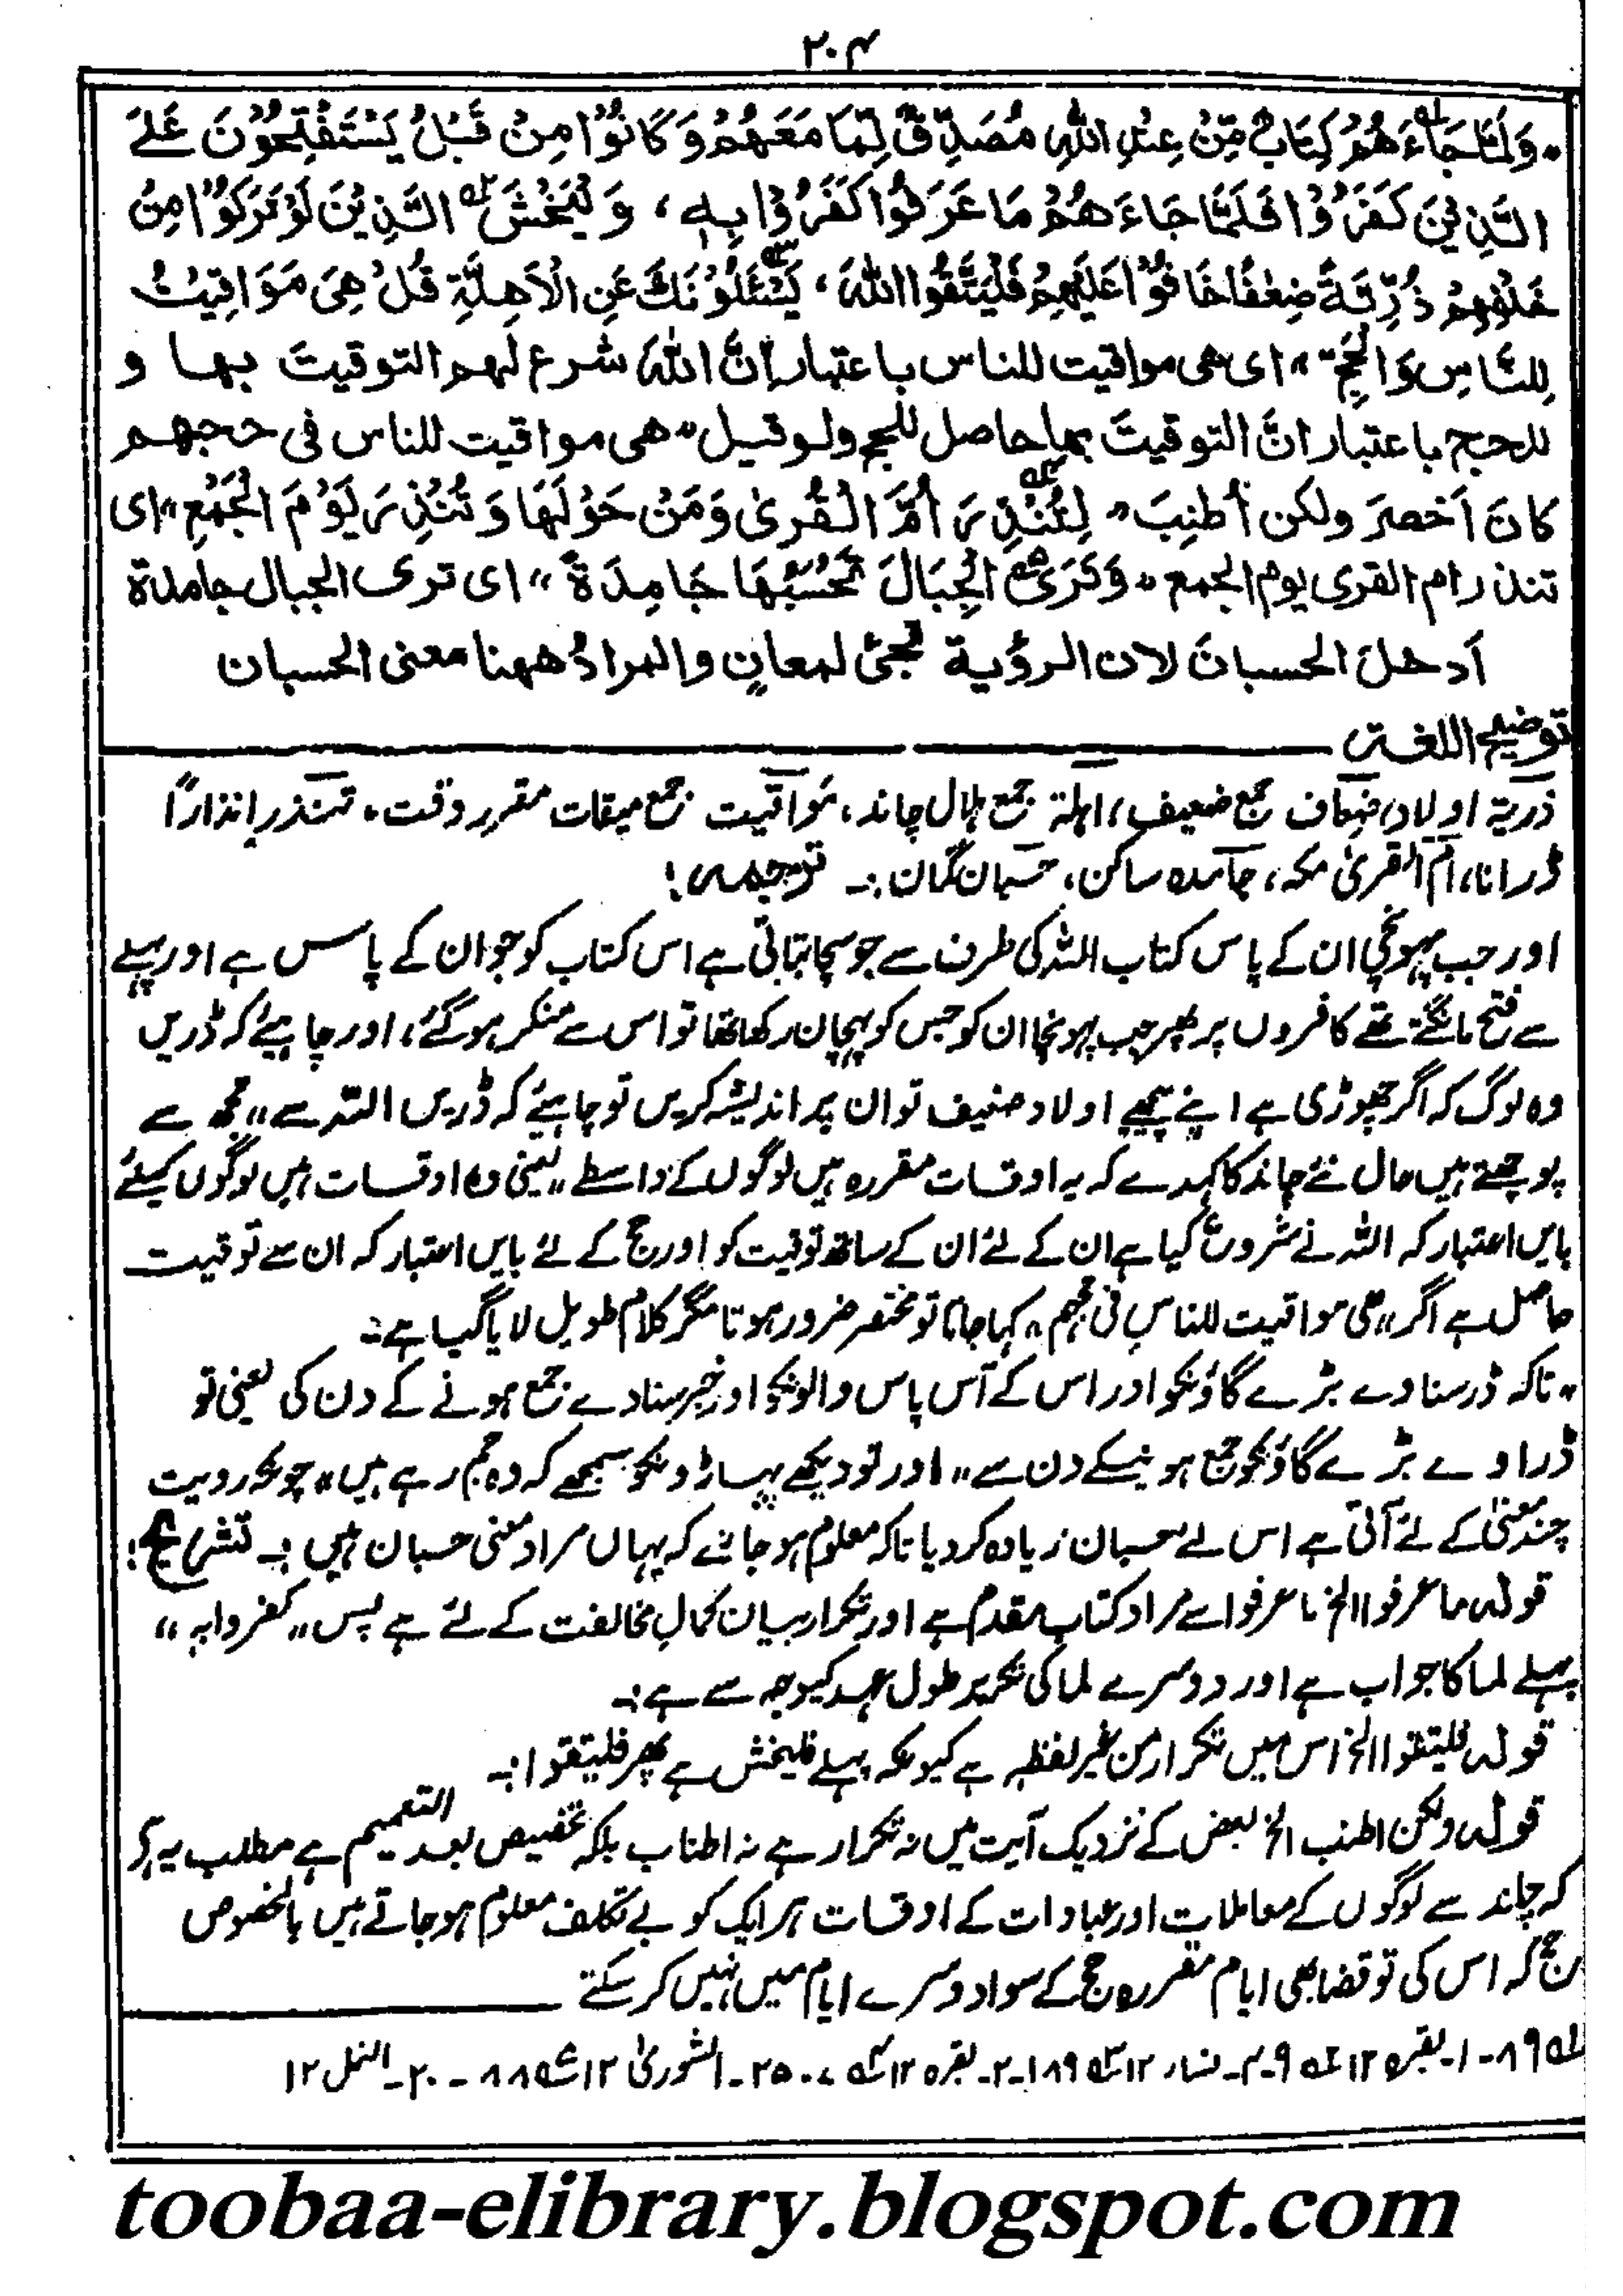 ۲۰۴
"وَلَمَّا جَاءَهُمْ كِتَابٌ مِّنْ عِنْدِ اللّٰهِ مُصَدِّقٌ لِّمَا مَعَهُمْ وَكَانُوْا مِنْ قَبْلُ يَسْتَفْتِحُوْنَ عَلَى
الَّذِيْنَ كَفَرُوْا فَلَمَّا جَاءَهُمْ مَا عَرَفُوْا كَفَرُوْا بِهٖ، وَلْيَخْشَ الَّذِيْنَ لَوْ تَرَكُوْا مِنْ
خَلْفِهِمْ ذُرِّيَّةً ضِعٰفًا خَافُوْا عَلَيْهِمْ فَلْيَتَّقُوا اللّٰهَ، يَسْئَلُوْنَكَ عَنِ الْاَهِلَّةِ قُلْ هِىَ مَوَاقِيْتُ
لِلنَّاسِ وَالْحَجِّ" اى هى مواقيت للناس باعتبار اَنَّ اللّٰهَ شرع لهم التوقيتَ بها و
للحج باعتبار انَّ التوقيتَ بها حاصل للحج ولو قيل "هى مواقيت للناس فى حجهم
كانَ اَخصرَ ولكن اُطنِبَ" لِتُنْذِرَ اُمَّ الْقُرىٰ وَمَنْ حَوْلَهَا وَتُنْذِرَ يَوْمَ الْجَمْعِ" اى
تنذر ام القرى يوم الجمع "وَتَرَى الْجِبَالَ تَحْسَبُهَا جَامِدَةً" اى ترى الجبال جامدة
اَدخلَ الحسبانَ لان الرؤية تجئ لمعانٍ والمرادُ ههنا معنى الحسبان
توضیح اللغۃ
ذریۃ اولاد، ضعاف جمع ضعیف، اہلۃ جمع ہلال چاند، مواقیت جمع میقات مقرر وقت، تنذر اِنذارًا
ڈرانا، ام القریٰ مکہ، جامدہ ساکن، حسبان گمان:۔ ترجمہ!
اور جب پہونچی ان کے پاس کتاب اللہ کی طرف سے جو سچا بتاتی ہے اس کتاب کو جو ان کے پاس ہے اور پہلے
سے فتح مانگتے تھے کافروں پر پھر جب پہونچا ان کو جس کو پہچان رکھا تھا تو اس سے منکر ہوگئے، اور چاہیئے کہ ڈریں
وہ لوگ کہ اگر چھوڑی ہے اپنے پیچھے اولاد ضعیف تو ان پر اندیشہ کریں تو چاہیئے کہ ڈریں اللہ سے" تجھ سے
پوچھتے ہیں حال نئے چاند کا کہدے کہ یہ اوقات مقررہ ہیں لوگوں کے واسطے" یعنی وہ اوقات ہیں لوگوں کیلئے
بایں اعتبار کہ اللہ نے مشروع کیا ہے ان کے لئے ان کے ساتھ توقیت کو اور حج کے لئے بایں اعتبار کہ ان سے توقیت
حاصل ہے اگر "ھی مواقیت للناس فی حجہم" کہا جاتا تو مختصر ضرور ہوتا مگر کلام طویل لایا گیا ہے:۔
"تاکہ ڈر سنا دے بڑے گاؤنکو اور اس کے آس پاس والونکو اور خبر سنا دے جمع ہونے کے دن کی یعنی تو
ڈراوے بڑے گاؤنکو جمع ہونیکے دن سے" اور تو دیکھے پہاڑونکو سمجھے کہ وہ جم رہے ہیں" چونکہ رویت
چند معنیٰ کے لئے آتی ہے اس لئے حسبان زیادہ کر دیا تاکہ معلوم ہو جائے کہ یہاں مراد معنی حسبان ہیں:۔ تشریح:
قولہ ما عرفوا الخ ما عرفوا سے مراد کتاب مقدم ہے اور تکرار بیان کمالِ مخالفت کے لئے ہے پس "کفروا بہ"
پہلے لما کا جواب ہے اور دوسرے لما کی تکریر طول عہد کیوجہ سے ہے:۔
قولہ فلیتقوا الخ اس میں تکرار من غیر لفظہ ہے کیونکہ پہلے فلیخش ہے پھر فلیتقوا:۔
قولہ ولکن اطنب الخ بعض کے نزدیک آیت میں نہ تکرار ہے نہ اطناب بلکہ تخصیص بعد التعمیم ہے مطلب یہ ہے
کہ چاند سے لوگوں کے معاملات اور عبادات کے اوقات ہر ایک کو بے تکلف معلوم ہو جاتے ہیں بالخصوص
حج کہ اس کی تو قضا بھی ایام مقررہ حج کے سوا دوسرے ایام میں نہیں کر سکتے
۸۹-۱-بقرہ ۱۲ ۹-۴-نساء ۱۲ ۱۸۹-۲-بقرہ ۱۲ ۷-۲۵-الشوریٰ ۱۲ ۸۸-۲۰-النمل ۱۲
toobaa-elibrary.blogspot.com